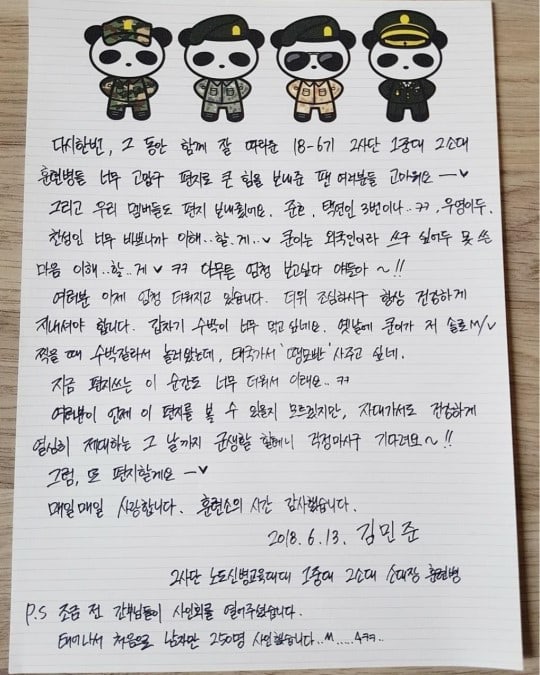 다시한번, 그 동안 함께 잘 따라준 18-6기 2사단 1중대 2소대
훈련병들 너무 고맙구 편지로 큰 힘을 보내준 팬 여러분들 고마워요 ─♥
그리고 우리 멤버들도 편지 보내줬어요. 준호, 택연인 3번이나..ㅋㅋ, 우영이두.
찬성인 너무 바쁘니까 이해..할.게..♥ 쿤이는 외국인이라 쓰구 싶어두 못 쓴
마음 이해..할..게 ♥ ㅋㅋ 다무튼 엄청 보고싶다 야들아 ~!!
여러분 이제 엄청 더워지고 있습니다. 더위 조심하시구 항상 건강하게
지내셔야 합니다. 갑자기 수박이 너무 먹고 싶네요. 옛날에 쿤이가 저 솔로 M/V
찍을 때 수박잘라서 놀러왔는데, 태국가서 '땡모반' 사주고 싶네.
지금 편지쓰는 이 순간도 너무 더워서 이래요..ㅋㅋ
여러분이 언제 이 편지를 볼 수 있을지 모르겠지만, 자대가서도 건강하게
열심히 제대하는 그 날까지 군생활 할테니 걱정마시구 기다려요~!!
그럼, 또 편지할게요 ─♥
매일매일 사랑합니다. 훈련소의 시간 감사했습니다.
2018.6.13. 김민준
2사단 노도신병교육대대 1중대 2소대 소대장 훈련병
P.S 조금 전 간부님들이 사인회를 열어주셨습니다.
태어나서 처음으로 남자만 250명 사인했습니다..^^.....ㅋㅋ..